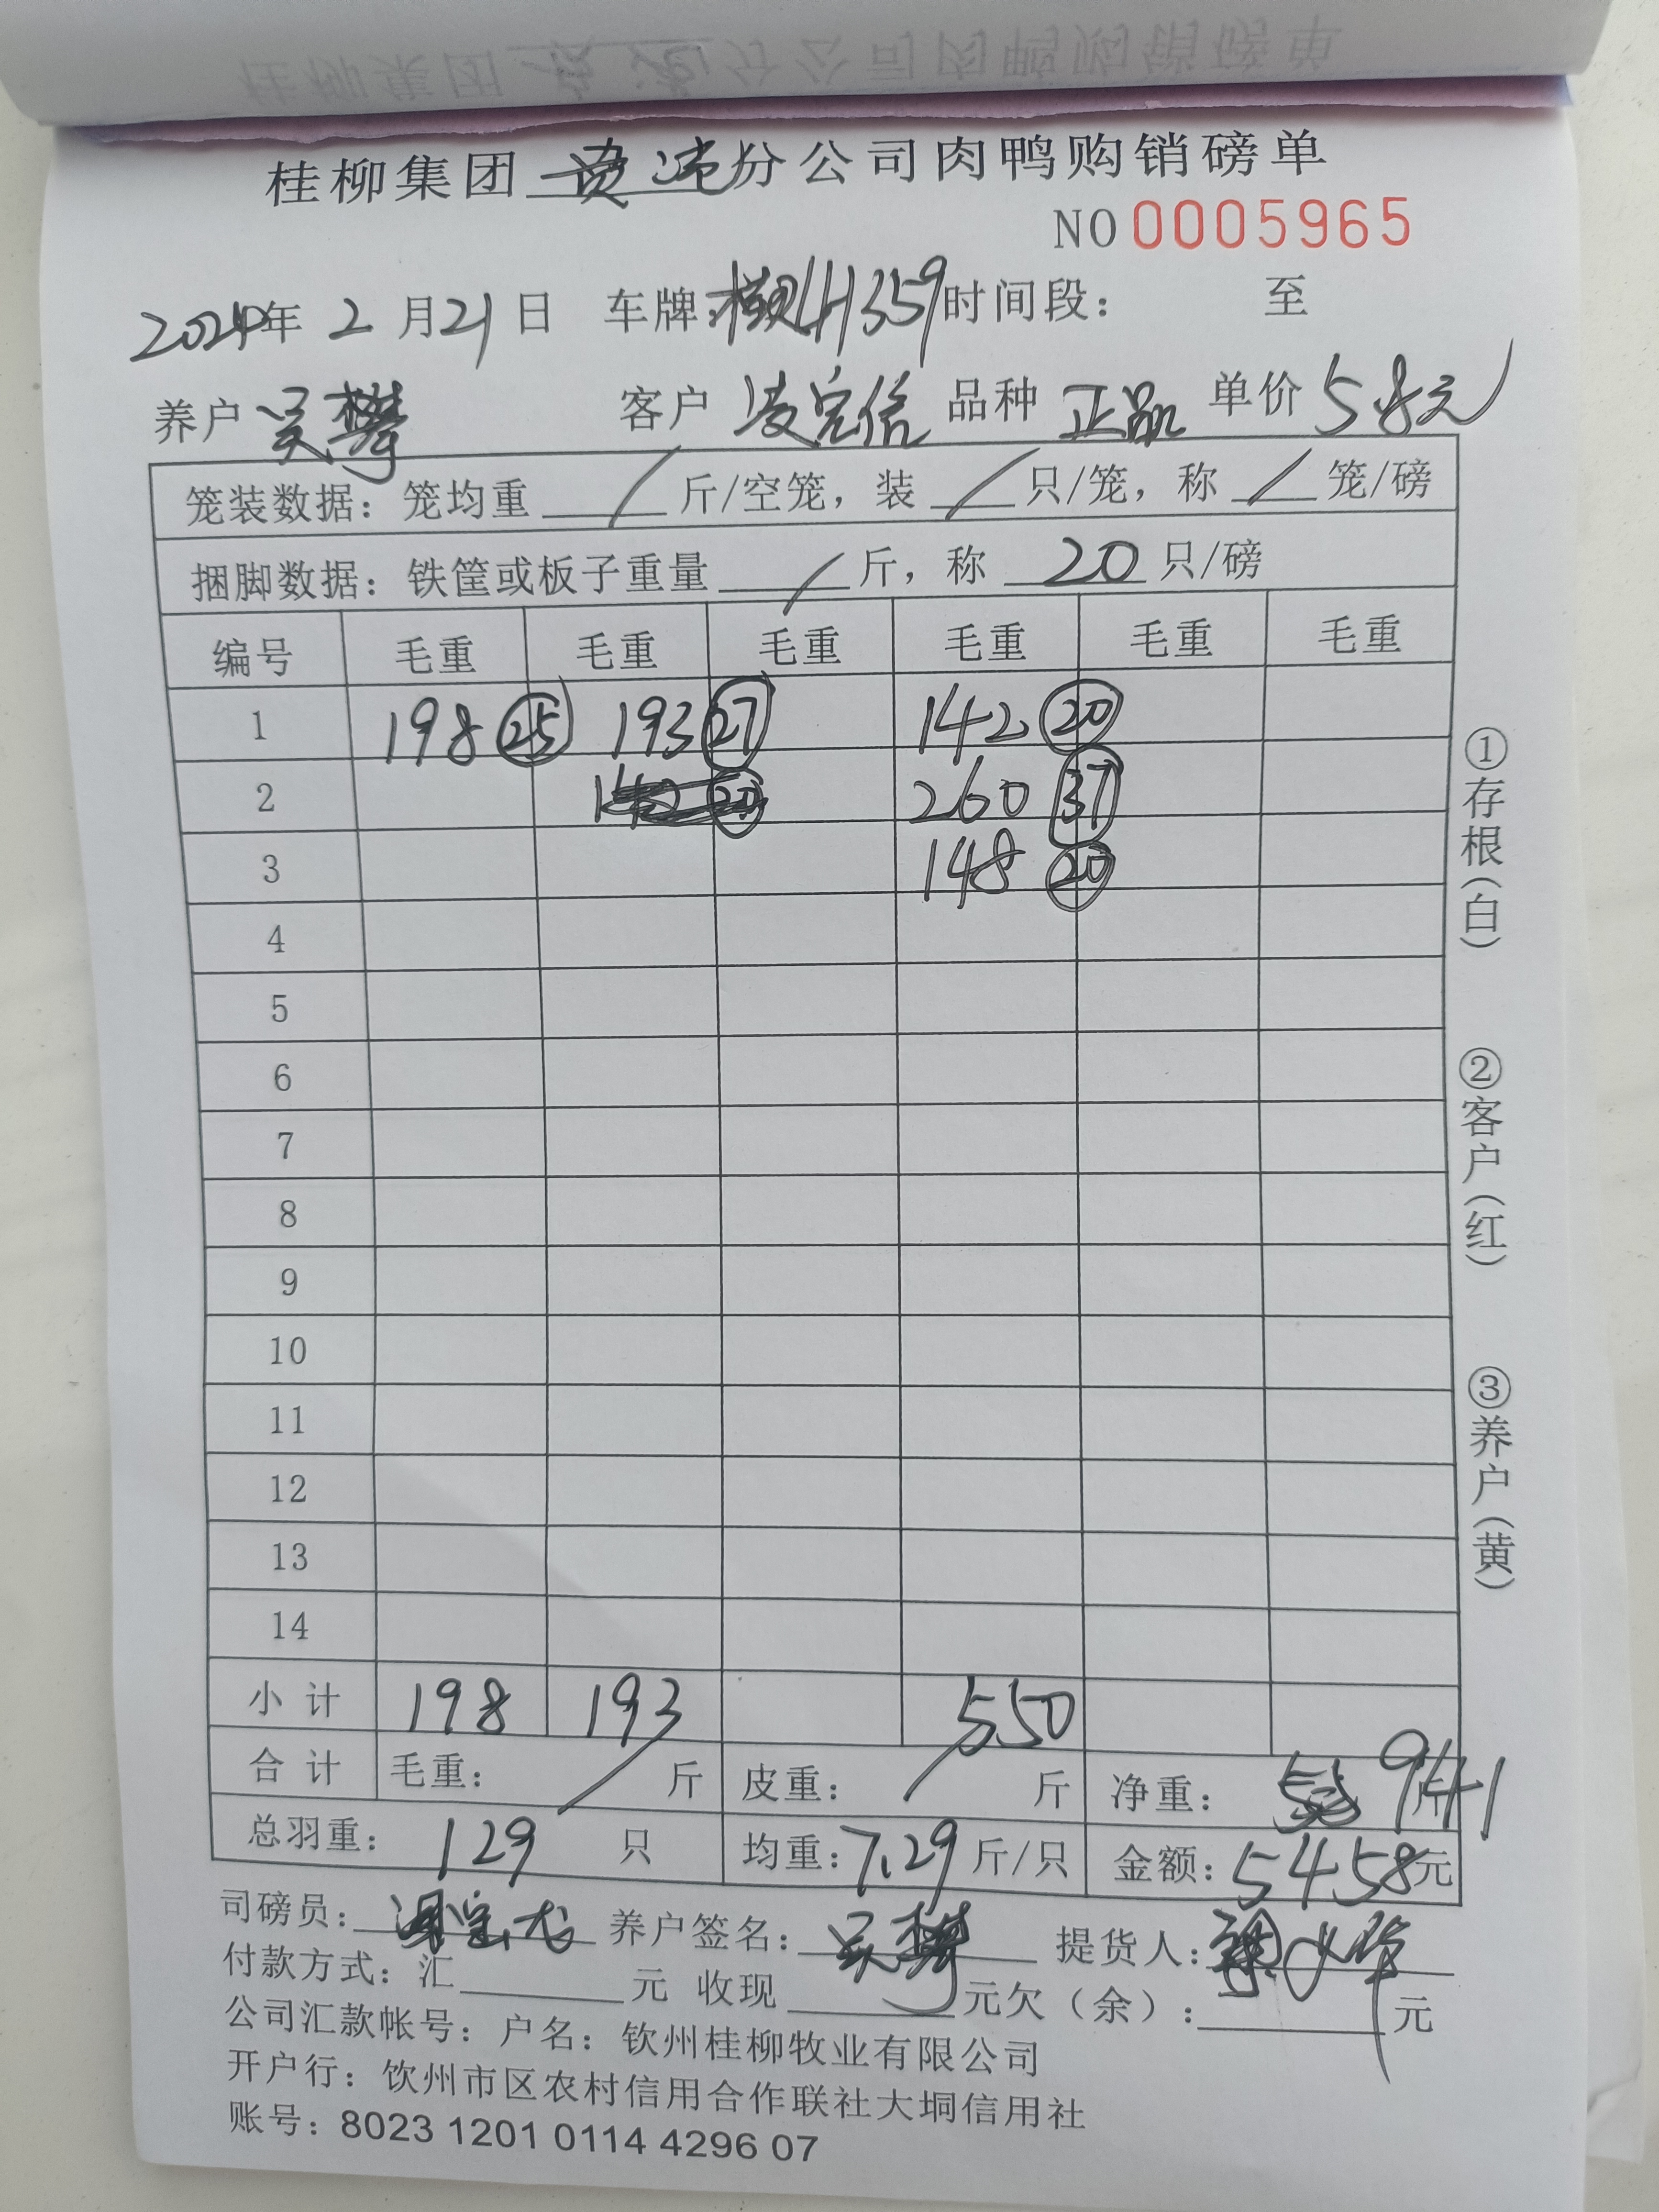 桂柳集团 分公司肉鸭购销磅单
NO 0005965
2024年 2 月 21 日 车牌: H1359 时间段: 至
养户 吴攀 客户 凌宏信 品种 正品 单价 5.8元
笼装数据: 笼均重 / 斤/空笼, 装 / 只/笼, 称 / 笼/磅
捆脚数据: 铁筐或板子重量 / 斤, 称 20 只/磅
编号 毛重 毛重 毛重 毛重 毛重 毛重
1 198 25 193 27 142 20
2 260 37
3 148 20
4
5
6
7
8
9
10
11
12
13
14
小计 198 193 550
合计 毛重: / 斤 皮重: / 斤 净重: 941 斤
总羽重: 129 只 均重: 7.29 斤/只 金额: 5458元
司磅员: 养户签名: 吴攀 提货人:
付款方式: 汇 元 收现 元欠(余): 元
公司汇款帐号: 户名: 钦州桂柳牧业有限公司
开户行: 钦州市区农村信用合作联社大垌信用社
账号: 8023 1201 0114 4296 07
①存根(白)
②客户(红)
③养户(黄)